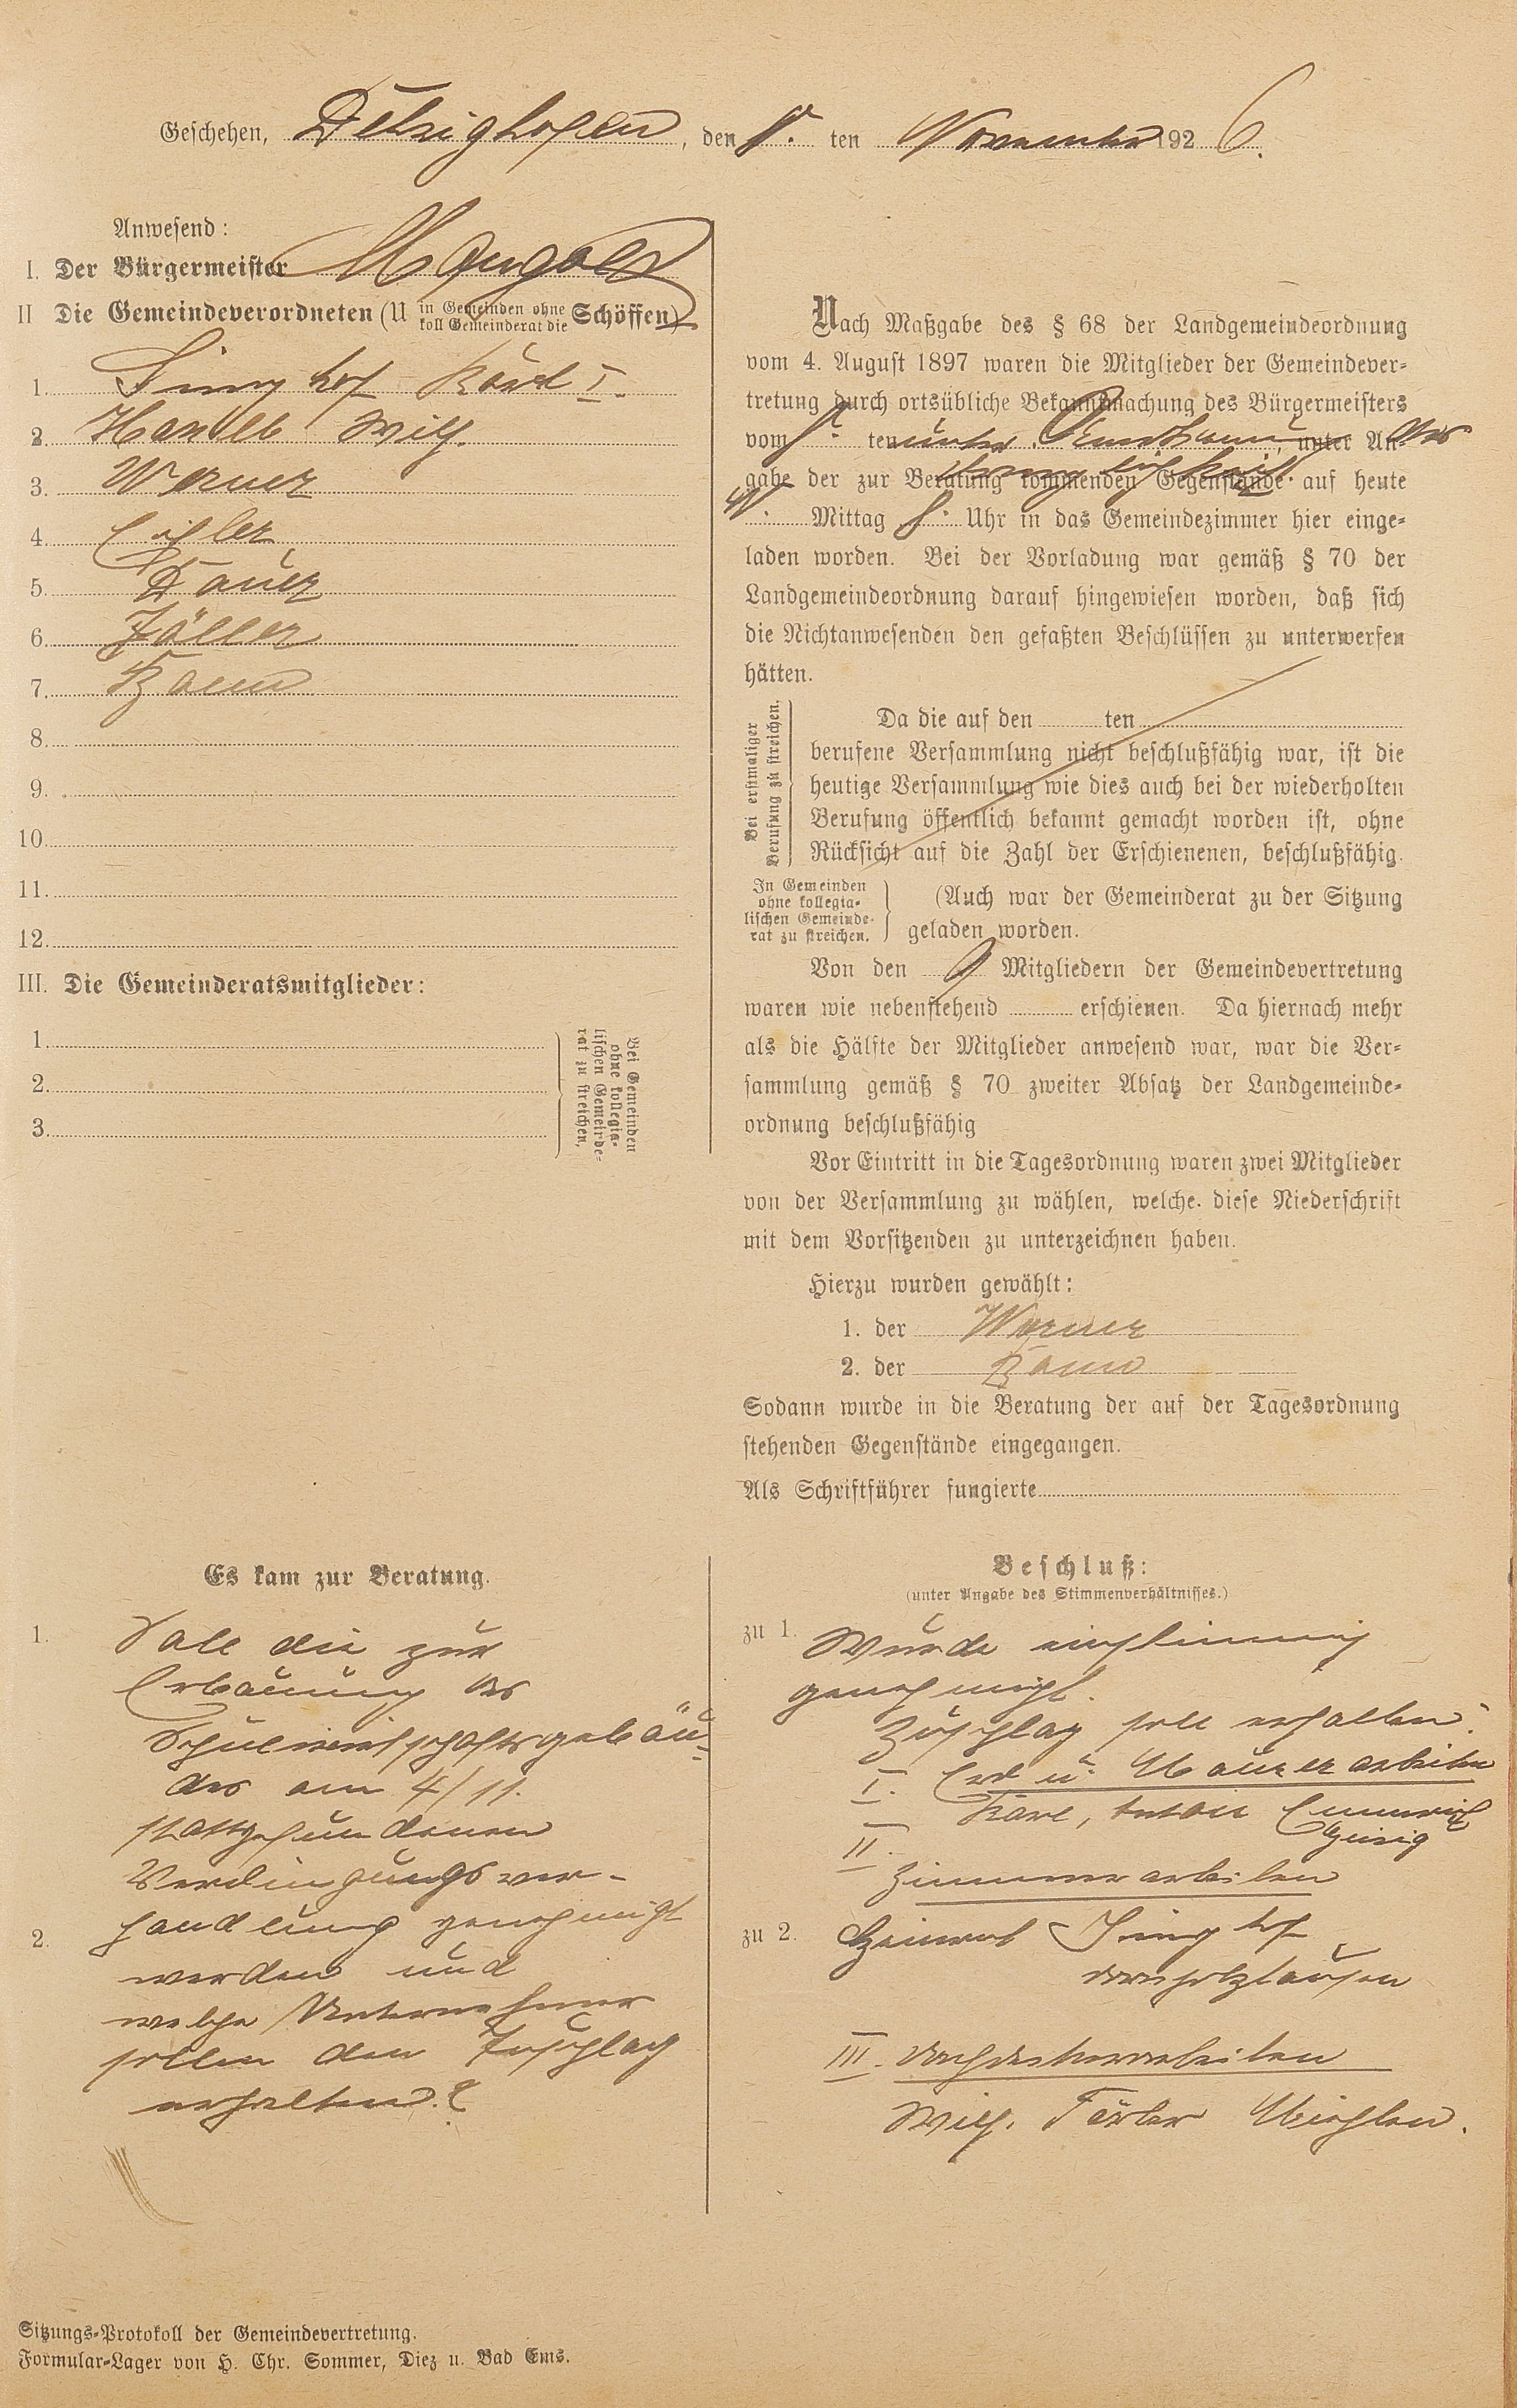 Geschehen, Detzighofen, den 8. ten November 1926.
Anwesend:
I. Der Bürgermeister Mangold
II Die Gemeindeverordneten (U in Gemeinden ohne koll Gemeinderat die Schöffen)
1. Singhof Karl I.
2. Wilh.
3. Werner
4.
5. Dauer
6. Föller
7.
8.
9.
10.
11.
12.
III. Die Gemeinderatsmitglieder:
1.
2.
3.
Bei Gemeinden
ohne kollegia-
lischen Gemeinde-
rat zu streichen,
Nach Maßgabe des § 68 der Landgemeindeordnung
vom 4. August 1897 waren die Mitglieder der Gemeindever-
tretung durch ortsübliche Bekanntmachung des Bürgermeisters
vom 8. ten unter , unter An- der
gabe der zur Beratung kommenden Gegenstände auf heute
N. Mittag 8. Uhr in das Gemeindezimmer hier einge-
laden worden. Bei der Vorladung war gemäß § 70 der
Landgemeindeordnung darauf hingewiesen worden, daß sich
die Nichtanwesenden den gefaßten Beschlüssen zu unterwerfen
hätten.
Bei erstmaliger
Berufung zu streichen.
Da die auf den ten
berufene Versammlung nicht beschlußfähig war, ist die
heutige Versammlung wie dies auch bei der wiederholten
Berufung öffentlich bekannt gemacht worden ist, ohne
Rücksicht auf die Zahl der Erschienenen, beschlußfähig.
In Gemeinden
ohne kollegia-
lischen Gemeinde-
rat zu streichen.
(Auch war der Gemeinderat zu der Sitzung
geladen worden.
Von den 9 Mitgliedern der Gemeindevertretung
waren wie nebenstehend erschienen. Da hiernach mehr
als die Hälfte der Mitglieder anwesend war, war die Ver-
sammlung gemäß § 70 zweiter Absatz der Landgemeinde-
ordnung beschlußfähig
Vor Eintritt in die Tagesordnung waren zwei Mitglieder
von der Versammlung zu wählen, welche. diese Niederschrift
mit dem Vorsitzenden zu unterzeichnen haben.
Hierzu wurden gewählt:
1. der Werner
2. der
Sodann wurde in die Beratung der auf der Tagesordnung
stehenden Gegenstände eingegangen.
Als Schriftführer fungierte
Es kam zur Beratung.
1. Soll die zur
Erbauung des
Schulwirtschaftsgebäu-
des am 4/11.
stattgefundenen
Verdingungsver-
2. handlung genehmigt
werden und
welche Unternehmer
sollen den Zuschlag
erhalten?
Beschluß:
(unter Angabe des Stimmenverhältnisses.)
zu 1. Wurde einstimmig
genehmigt.
Zuschlag soll erhalten:
I. Erd u. Maurerarbeiten
Karl, Anton Emmerich
Geisig
II.
Zimmerarbeiten
zu 2. Heinrich Singhof
Dornholzhausen
III. Dachdeckerarbeiten
Wilh. Miehlen.
Sitzungs-Protokoll der Gemeindevertretung.
Formular-Lager von H. Chr. Sommer, Diez u. Bad Ems.